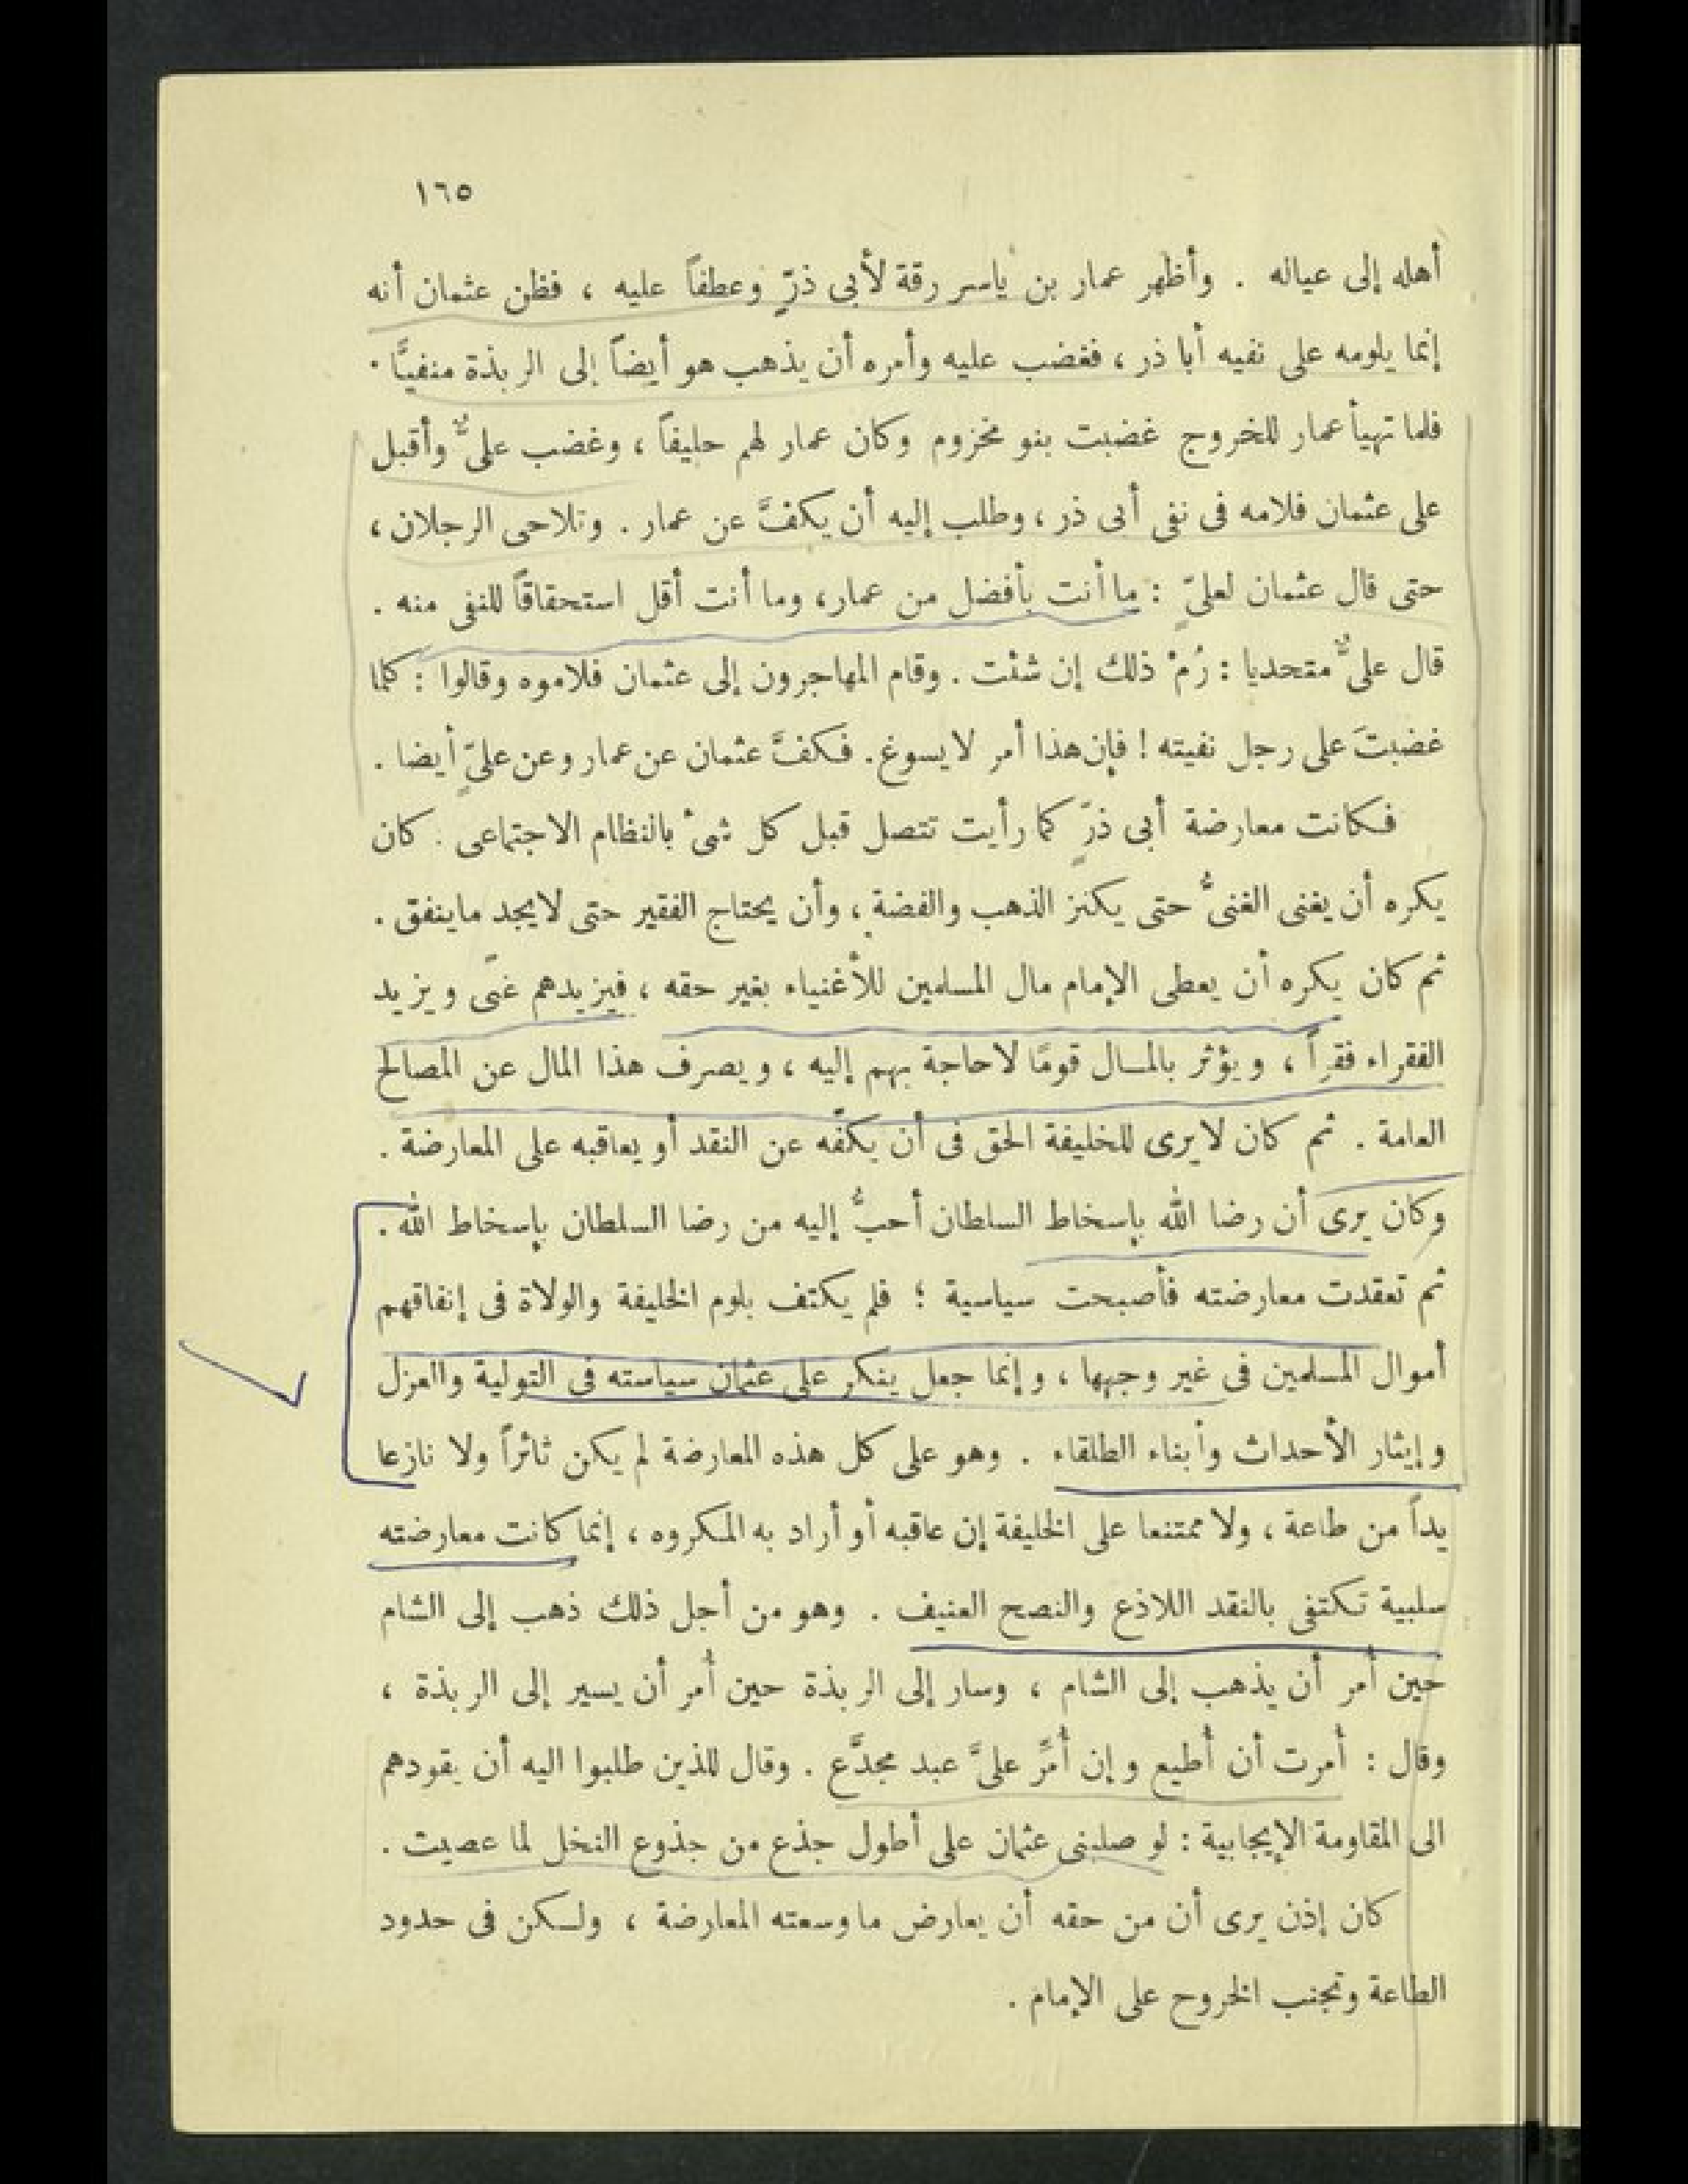 ١٦٥
أهله إلى عياله . وأظهر عمار بن ياسر رقة لأبى ذرّ وعطفاً عليه ، فظن عثمان أنه
إنما يلومه على نفيه أبا ذر ، فغضب عليه وأمره أن يذهب هو أيضاً إلى الربذة منفيًّا .
فلما تهيأ عمار للخروج غضبت بنو مخزوم وكان عمار لهم حليفاً ، وغضب علىٌّ وأقبل
على عثمان فلامه فى نفى أبى ذر ، وطلب إليه أن يكفَّ عن عمار . وتلاحى الرجلان ،
حتى قال عثمان لعلىّ : ما أنت بأفضل من عمار ، وما أنت أقل استحقاقاً للنفى منه .
قال علىٌّ متحديا : رُمْ ذلك إن شئت . وقام المهاجرون إلى عثمان فلاموه وقالوا : كلما
غضبتَ على رجل نفيته ! فإن هذا أمر لا يسوغ . فكفَّ عثمان عن عمار وعن علىّ أيضا .
فكانت معارضة أبى ذرّ كما رأيت تتصل قبل كل شىء بالنظام الاجتماعى . كان
يكره أن يغنى الغنىُّ حتى يكنز الذهب والفضة ، وأن يحتاج الفقير حتى لا يجد ما ينفق .
ثم كان يكره أن يعطى الإمام مال المسلمين للأغنياء بغير حقه ، فيزيدهم غنًى ويزيد
الفقراء فقراً ، ويؤثر بالمال قومًا لا حاجة بهم إليه ، ويصرف هذا المال عن المصالح
العامة . ثم كان لا يرى للخليفة الحق فى أن يكفّه عن النقد أو يعاقبه على المعارضة .
وكان يرى أن رضا الله بإسخاط السلطان أحبُّ إليه من رضا السلطان بإسخاط الله .
ثم تعقدت معارضته فأصبحت سياسية ؛ فلم يكتف بلوم الخليفة والولاة فى إنفاقهم
أموال المسلمين فى غير وجهها ، وإنما جعل ينكر على عثمان سياسته فى التولية والعزل
وإيثار الأحداث وأبناء الطلقاء . وهو على كل هذه المعارضة لم يكن ثائراً ولا نازعا
يداً من طاعة ، ولا ممتنعا على الخليفة إن عاقبه أو أراد به المكروه ، إنما كانت معارضته
سلبية تكتفى بالنقد اللاذع والنصح العنيف . وهو من أجل ذلك ذهب إلى الشام
حين أُمر أن يذهب إلى الشام ، وسار إلى الربذة حين أُمر أن يسير إلى الربذة ،
وقال : أمرت أن أطيع وإن أُمِّر علىَّ عبد مجدَّع . وقال للذين طلبوا اليه أن يقودهم
الى المقاومة الإيجابية : لو صلبنى عثمان على أطول جذع من جذوع النخل لما عصيت .
كان إذن يرى أن من حقه أن يعارض ما وسعته المعارضة ، ولكن فى حدود
الطاعة وتجنب الخروج على الإمام .